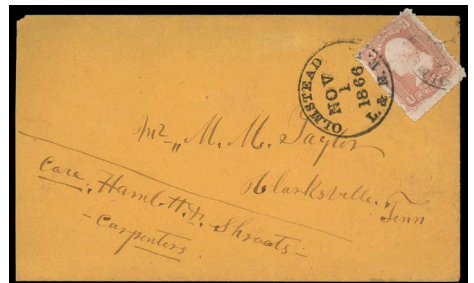 OLMSTEAD
NOV
1
1866
& T. M. R.
Mr. M. M. Taylor
Clarksville,
Tenn
Care, Hamlett & Shroats
- Carpenters